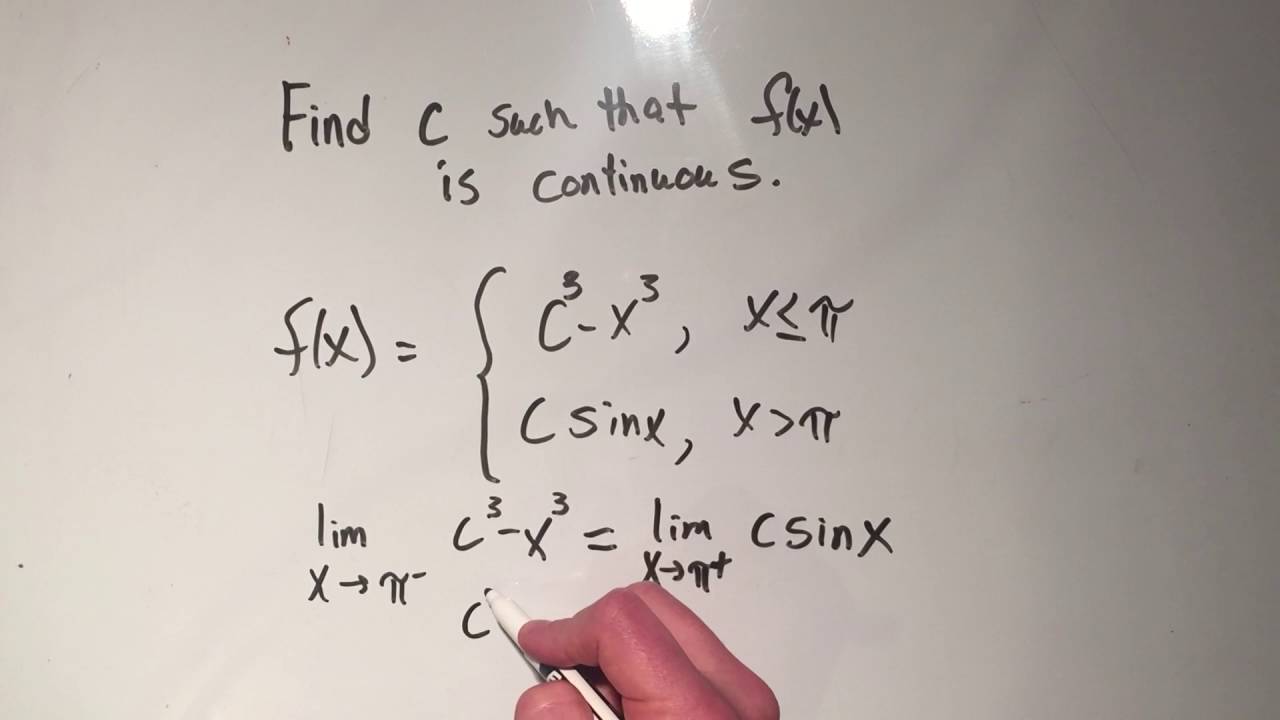 Find c such that f(x)
is continuous.
f(x) = { c³-x³, x≤π
c sinx, x>π
lim x→π⁻ c³-x³ = lim x→π⁺ c sinx
c